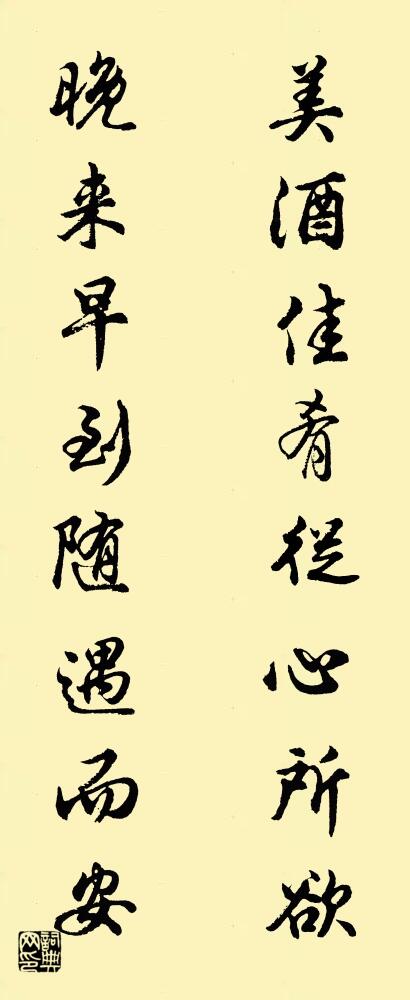 美酒佳肴從心所欲
晚来早到随遇而安
詞典網印